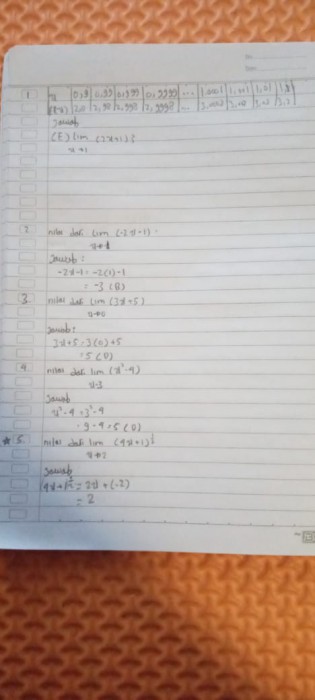 No:
Date:
1 x 0,9 0,99 0,999 0,9999 ... 1,0001 1,001 1,01 1,1
2,8 2,98 2,998 2,9998 ... 3,002 3,02
Jawab
(E) lim (2x+1) 3
x→1
2 nilai dari lim (-2x-1) =
Jawab :
-2x-1 = -2(1)-1
= -3 (B)
3. nilai dari lim (3x+5)
x→0
Jawab:
3x+5 = 3(0)+5
= 5 (D)
4. nilai dari lim (x²-4)
x→3
Jawab
x²-4 = 3²-4
= 9-4 = 5 (D)
5. nilai dari lim (4x+1)
Jawab
= 2x + (-2)
= 2